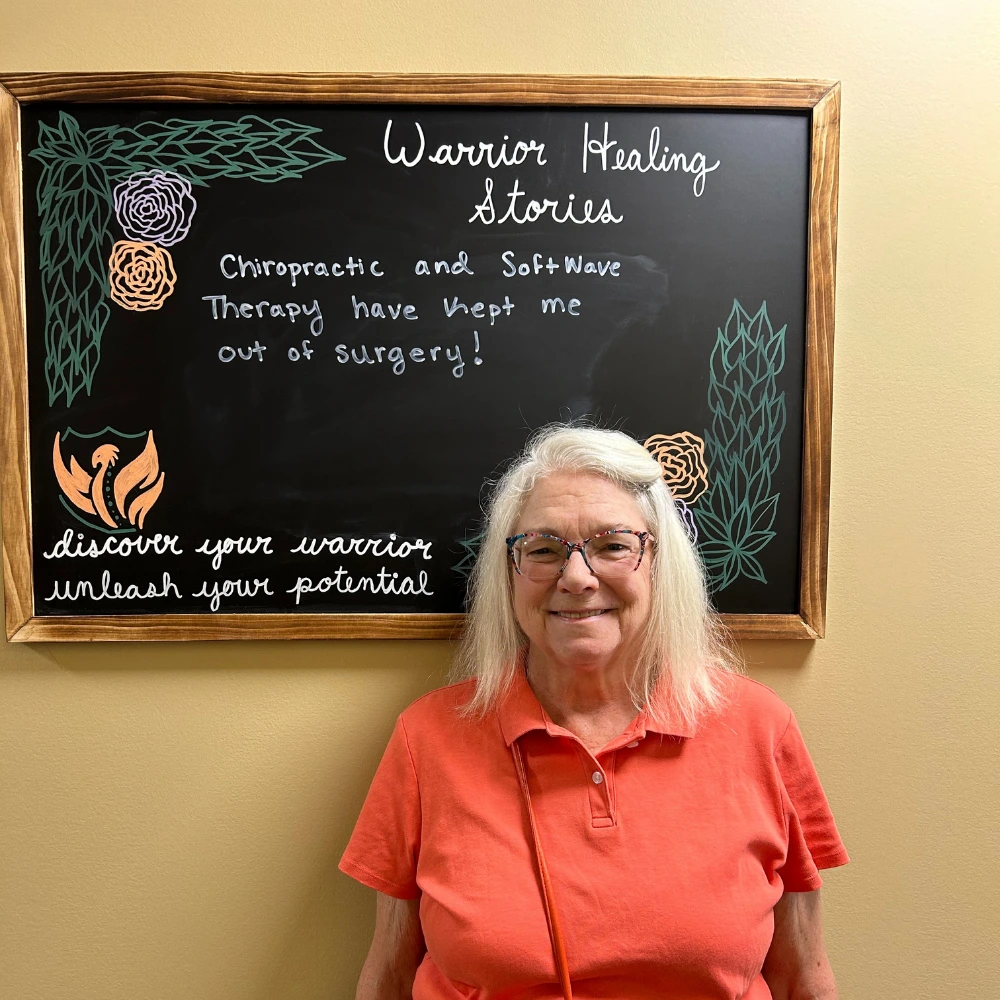 Warrior Healing
Stories
Chiropractic and SoftWave
Therapy have kept me
out of surgery!
discover your warrior
unleash your potential